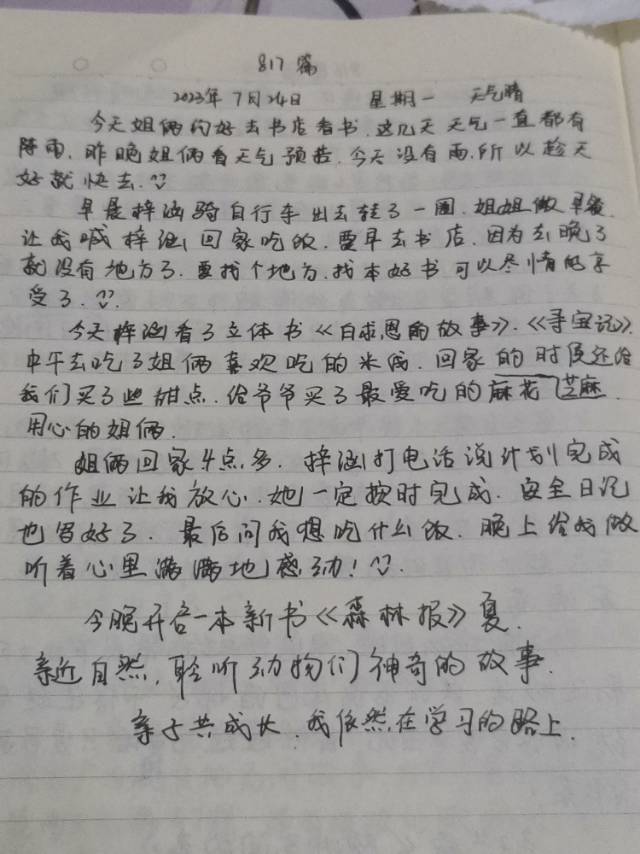 817篇
2023年7月24日 星期一 天气晴
今天姐俩约好去书店看书.这几天天气一直都有
阵雨.昨晚姐俩看天气预告.今天没有雨.所以趁天
好就快去.
早晨梓涵骑自行车出去转了一圈.姐姐做早餐.
让我喊梓涵回家吃饭.要早去书店.因为去晚了
就没有地方了.要找个地方.找本好书可以尽情的享
受了.
今天梓涵看了立体书《白求恩的故事》.《寻宝记》.
中午去吃了姐俩喜欢吃的米线.回家的时候还给
我们买了些甜点.给爷爷买了最爱吃的麻花芝麻.
用心的姐俩.
姐俩回家4点多.梓涵打电话说计划完成
的作业让我放心.她一定按时完成.安全日记
也写好了.最后问我想吃什么饭.晚上给我做
听着心里满满地感动!
今晚开启一本新书《森林报》夏.
亲近自然,聆听动物们神奇的故事.
亲子共成长.我依然在学习的路上.